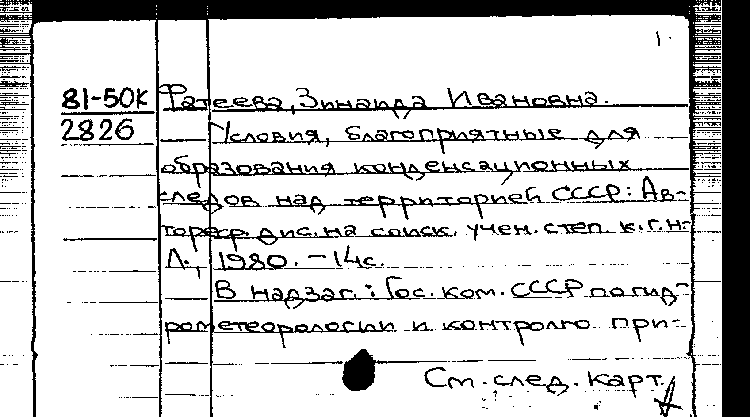 1.
81-50К Фатеева, Зинаида Ивановна.
2826 Условия, благоприятные для
образования конденсационных
следов над территорией СССР: Ав-
тореф. дис. на соиск. учен. степ. к.г.н.
Л., 1980. - 14с.
В надзаг.: Гос. ком. СССР по гид-
рометеорологии и контролю при-
См. след. карт.